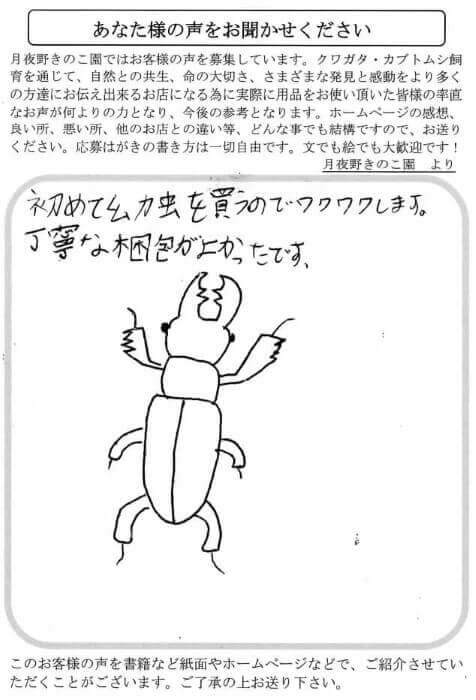 あなた様の声をお聞かせください
月夜野きのこ園ではお客様の声を募集しています。クワガタ・カブトムシ飼
育を通じて、自然との共生、命の大切さ、さまざまな発見と感動をより多く
の方達にお伝え出来るお店になる為に実際に用品をお使い頂いた皆様の率直
なお声が何よりの力となり、今後の参考となります。ホームページの感想、
良い所、悪い所、他のお店との違い等、どんな事でも結構ですので、お送り
ください。応募はがきの書き方は一切自由です。文でも絵でも大歓迎です！
月夜野きのこ園　より
初めて幼虫を買うのでワクワクします。
丁寧な梱包がよかったです、
このお客様の声を書籍など紙面やホームページなどで、ご紹介させてい
ただくことがございます。ご了承の上お送り下さい。